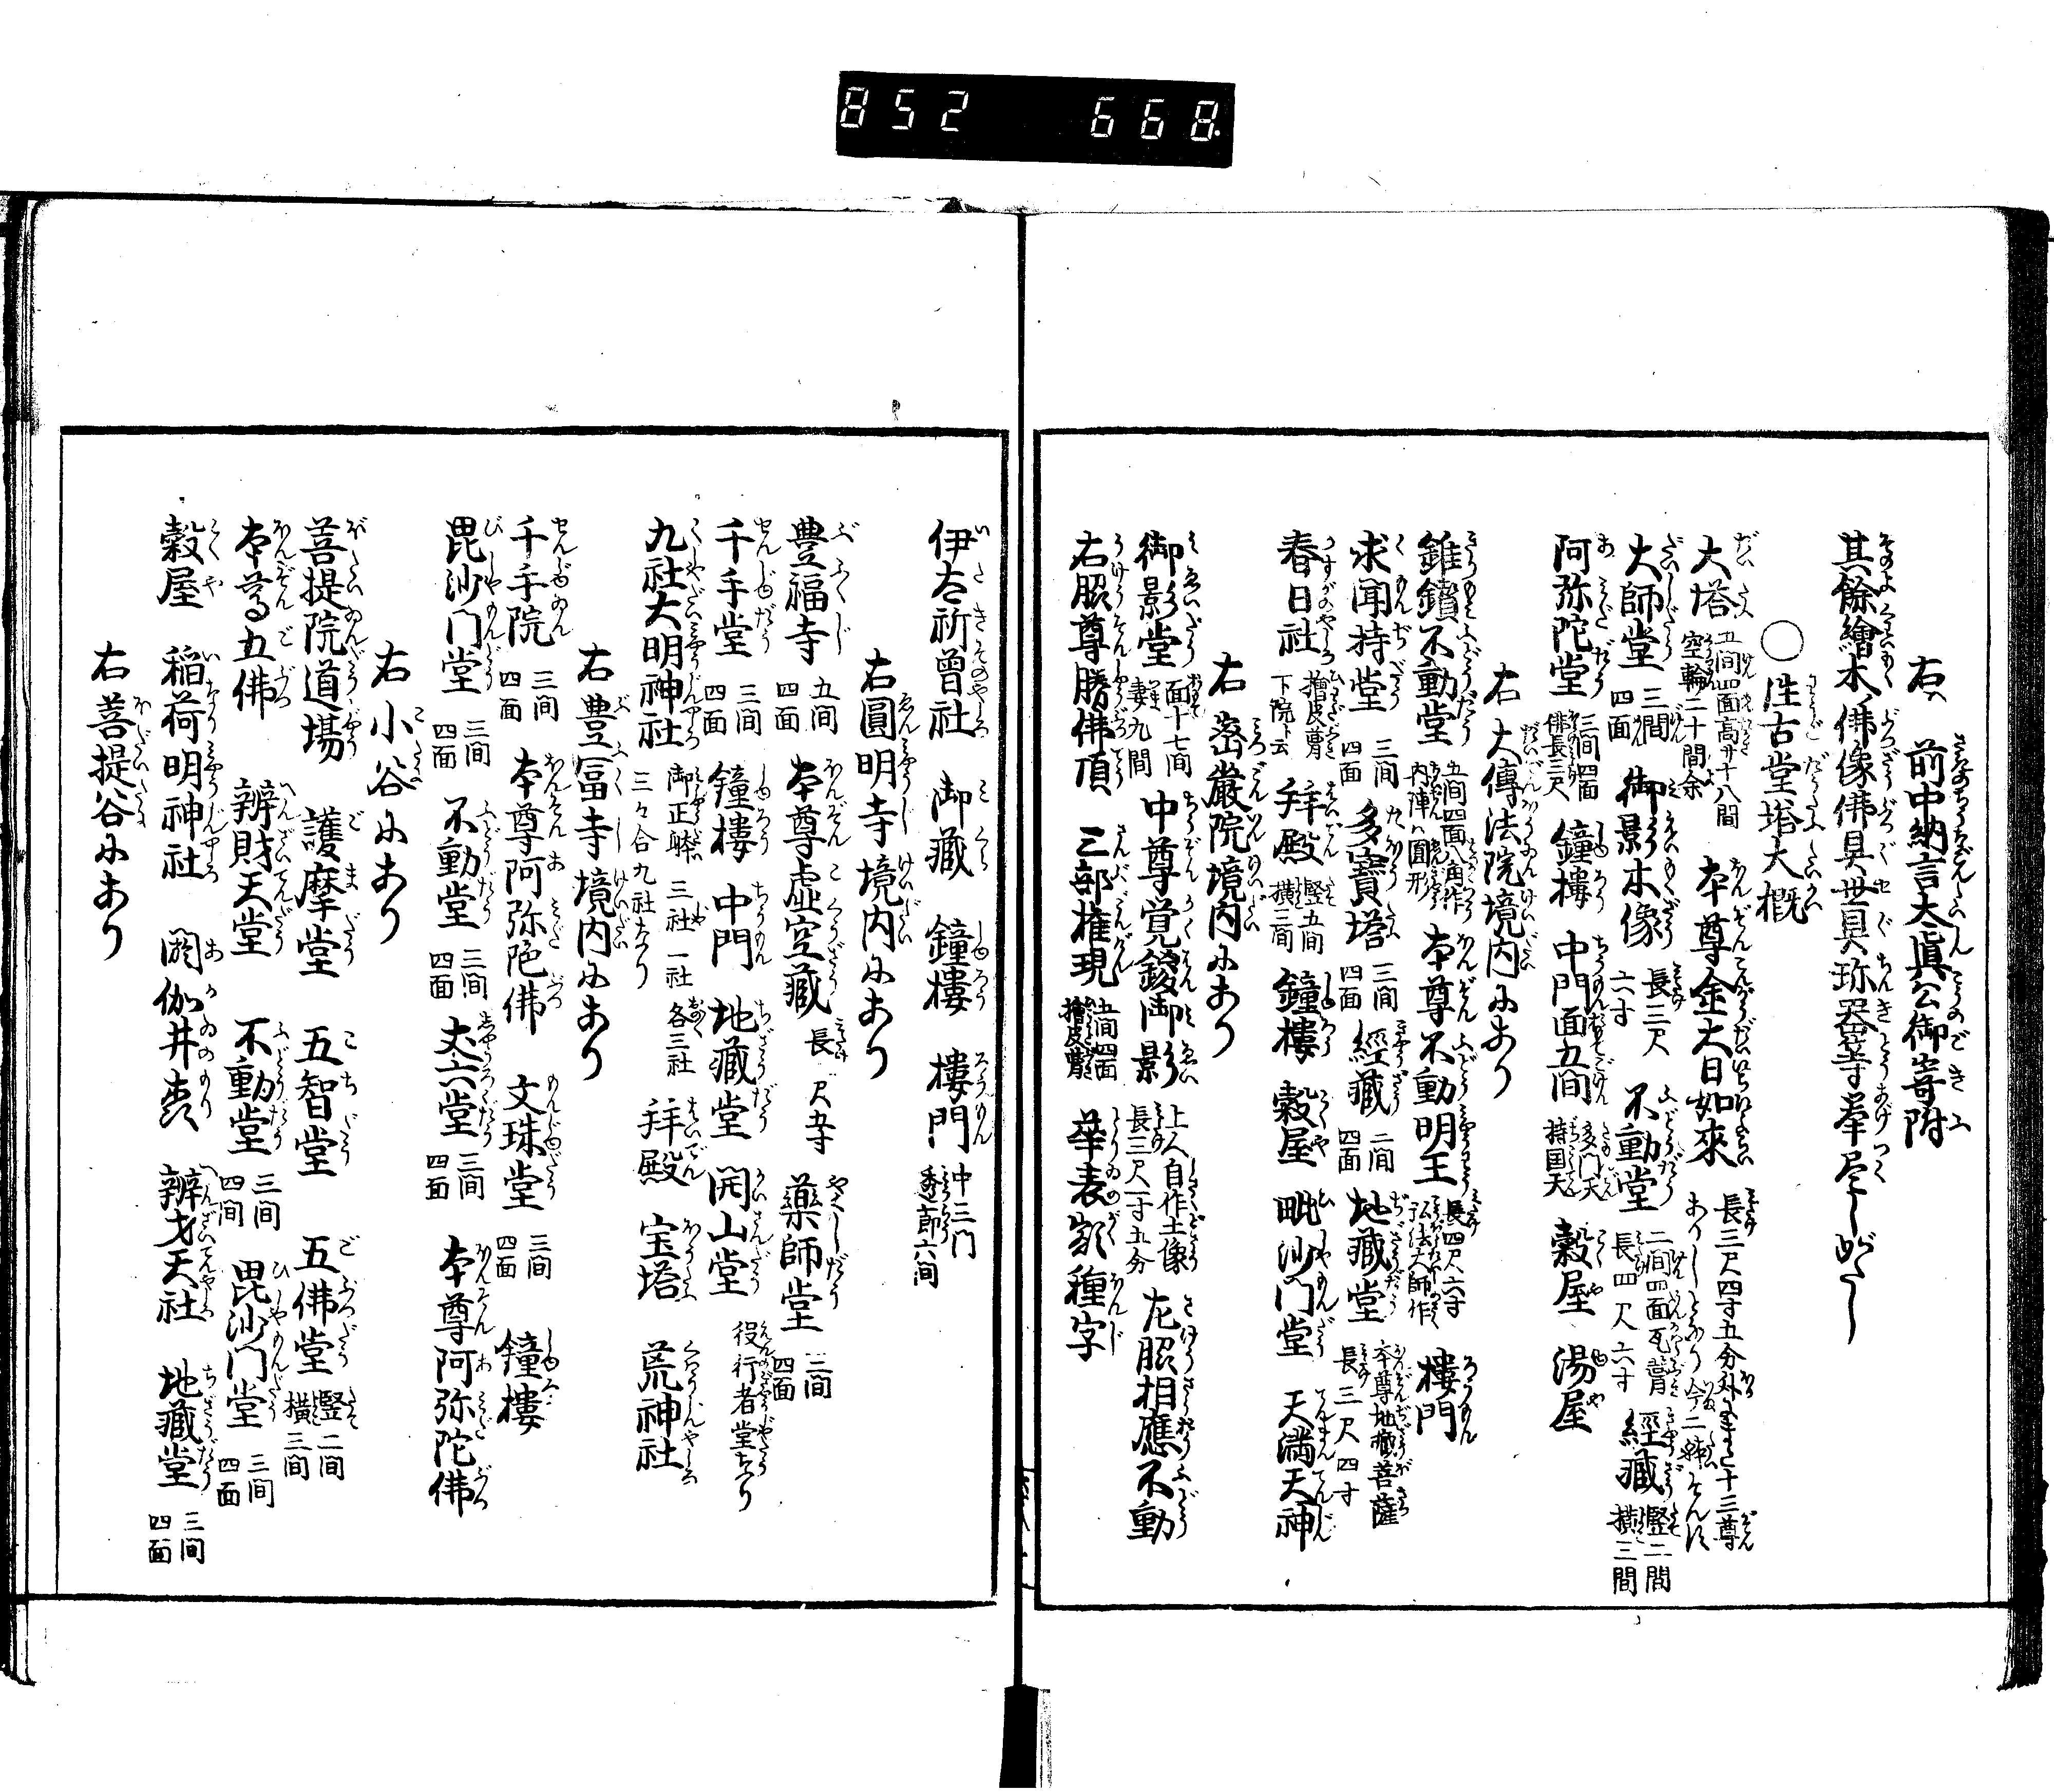 852 668
右ハ前中納言大眞公御寄附
其餘繪木佛像佛具世具珍器等挙尽しがたし
○往古堂塔大概
大塔 五間四面高サ十八間 空輪二十間余 本尊金大日如來 長三尺四寸五分
大師堂 三間四面 御影木像 長三尺六寸 不動堂 二間四面瓦膏 長四尺六寸 經藏 竪二間 横三間
阿弥陀堂 三間四面 長三尺 鐘樓 中門面五間 多門天 持国天 穀屋 湯屋
右大傳法院境内にあり
錐鑚不動堂 五間四面八角作 内陣ハ圓形 本尊不動明王 長四尺六寸 弘法大師作 樓門
求聞持堂 三間四面 多寳塔 三間四面 經藏 二間四面 地藏堂 本尊地藏菩薩 長三尺四寸
春日社 檜皮膏 下院ト云 拜殿 竪五間 横三間 鐘樓 穀屋 毗沙门堂 天満天神
右密嚴院境内にあり
御影堂 面十七间 妻九間 中尊覚鑁御影 上人自作土像 長三尺一寸五分 左脇相應不動
右脇尊勝佛頂 三部権現 五間四面 檜皮膏 華表額種字
伊太祈曾社 御藏 鐘樓 樓門 中三门 透廊六间
右圓明寺境内にあり
豊福寺 五间四面 本尊虚空藏 長 尺五寸 藥師堂 三间四面
千手堂 三间四面 鐘樓 中門 地藏堂 開山堂 役行者堂なり
九社大明神社 御正躰 三社 一社各三社 三々合九社なり 拜殿 宝塔 荒神社
右豊冨寺境内にあり
千手院 三间四面 本尊阿弥陀佛 文珠堂 三间四面 鐘樓
毘沙门堂 三间四面 不動堂 三间四面 丈六堂 三间四面 本尊阿弥陀佛
右小谷にあり
菩提院道場 護摩堂 五智堂 五佛堂 竪二间 横三间
本尊五佛 辨財天堂 不動堂 三间四间 毘沙门堂 三间四面
穀屋 稲荷明神社 閼伽井 辨才天社 地藏堂 三间四面
右菩提谷にあり